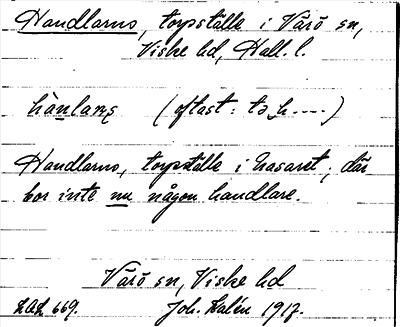 Handlarns, torpställe i Värö sn,
Viske hd, Hall. l.
hànlaņş (oftast: tə h....)
Handlarns, torpställe i Nasaret; där
bor inte nu någon handlare.
Värö sn, Viske hd
LAL 669. Joh. Kalén 1917.